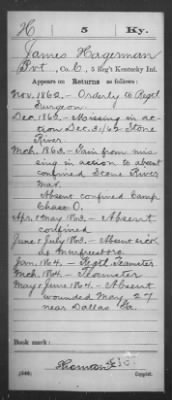 H 5 Ky.
James Hagerman
Pvt, Co. C, 5 Reg't Kentucky Inf.
Appears on Returns as follows:
Nov. 1862.- Orderly to Regtl
Surgeon.
Dec. 1862.- Missing in ac-
tion Dec. 31/62 Stone
River.
Mch. 1863.- Gain from mis-
sing in action to absent
confined Stone River
Absent confined Camp
Chase O.
Apr. & May 1863.- Absent
confined
June & July 1863.- Absent sick
Murfreesboro
Jan. 1864.- Regtl Teamster
Mch. 1864.- Teamster
May & June 1864.- Absent
wounded May 27
near Dallas Ga.
Book mark:
(546)
Copyist.